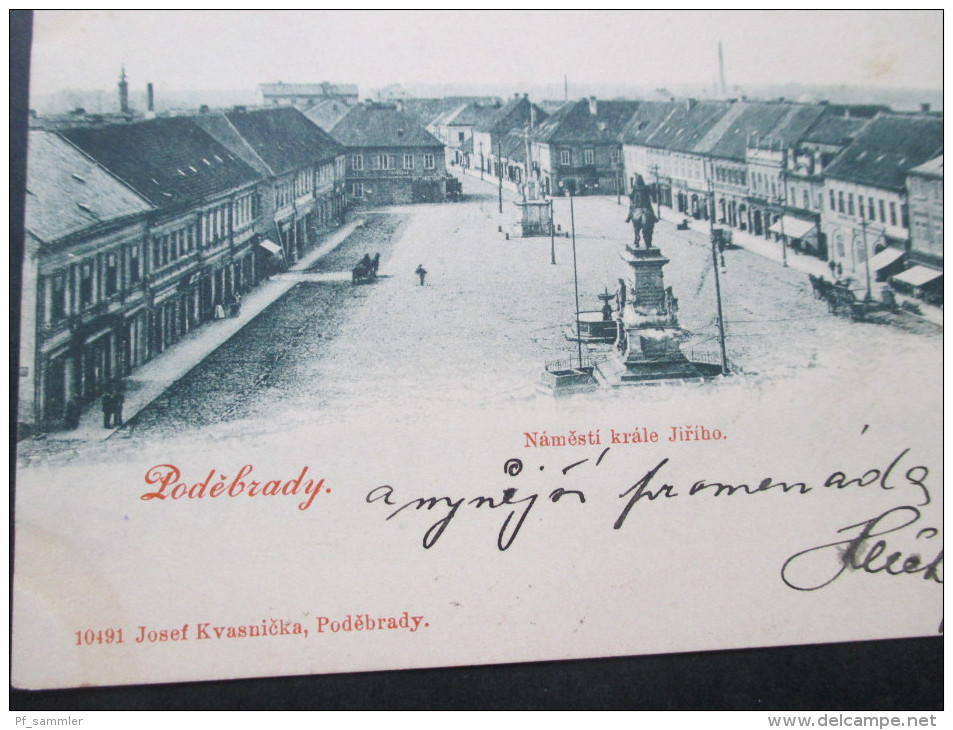 Náměstí krále Jiřího.
Poděbrady.
a nynější promenáda
10491 Josef Kvasnička, Poděbrady.
Pf_sammler
www.delcampe.net